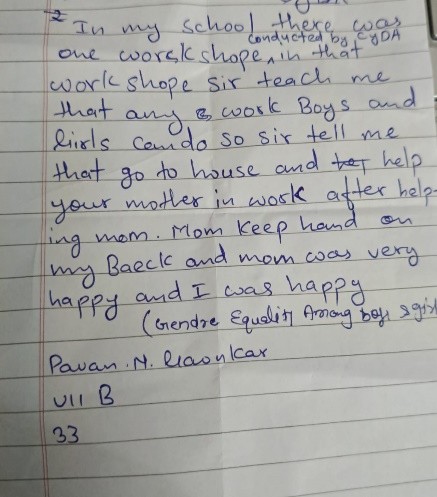 2 In my school there was
conducted by CYDA
one worskshope, in that
workshope sir teach me
that any work Boys and
Girls can do so sir tell me
that go to house and help
your mother in work after help-
ing mom. Mom keep hand on
my Baeck and mom was very
happy and I was happy
(Gendre Equality Among boys & girls
Pavan. N. Gaonkar
VII B
33